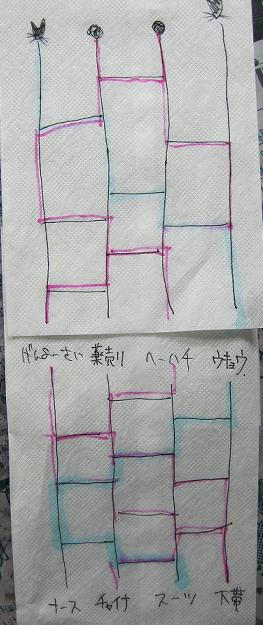 げんよーさい 薬売り ヘーハチ ウキョウ
ナース チャイナ スーツ 下帯